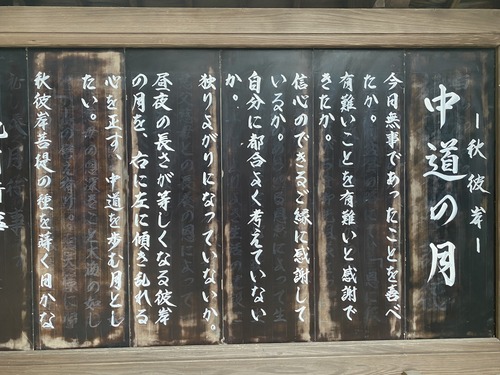 －秋彼岸－
中道の月
今日無事であったことを喜べ
たか。
有難いことを有難いと感謝で
きたか。
信心のできるご縁に感謝して
いるか。
自分に都合よく考えていない
か。
独りよがりになっていないか。
昼夜の長さが等しくなる彼岸
の月を、右に左に傾き乱れる
心を正す、中道を歩む月とし
たい。
秋彼岸菩提の種を蒔く日かな